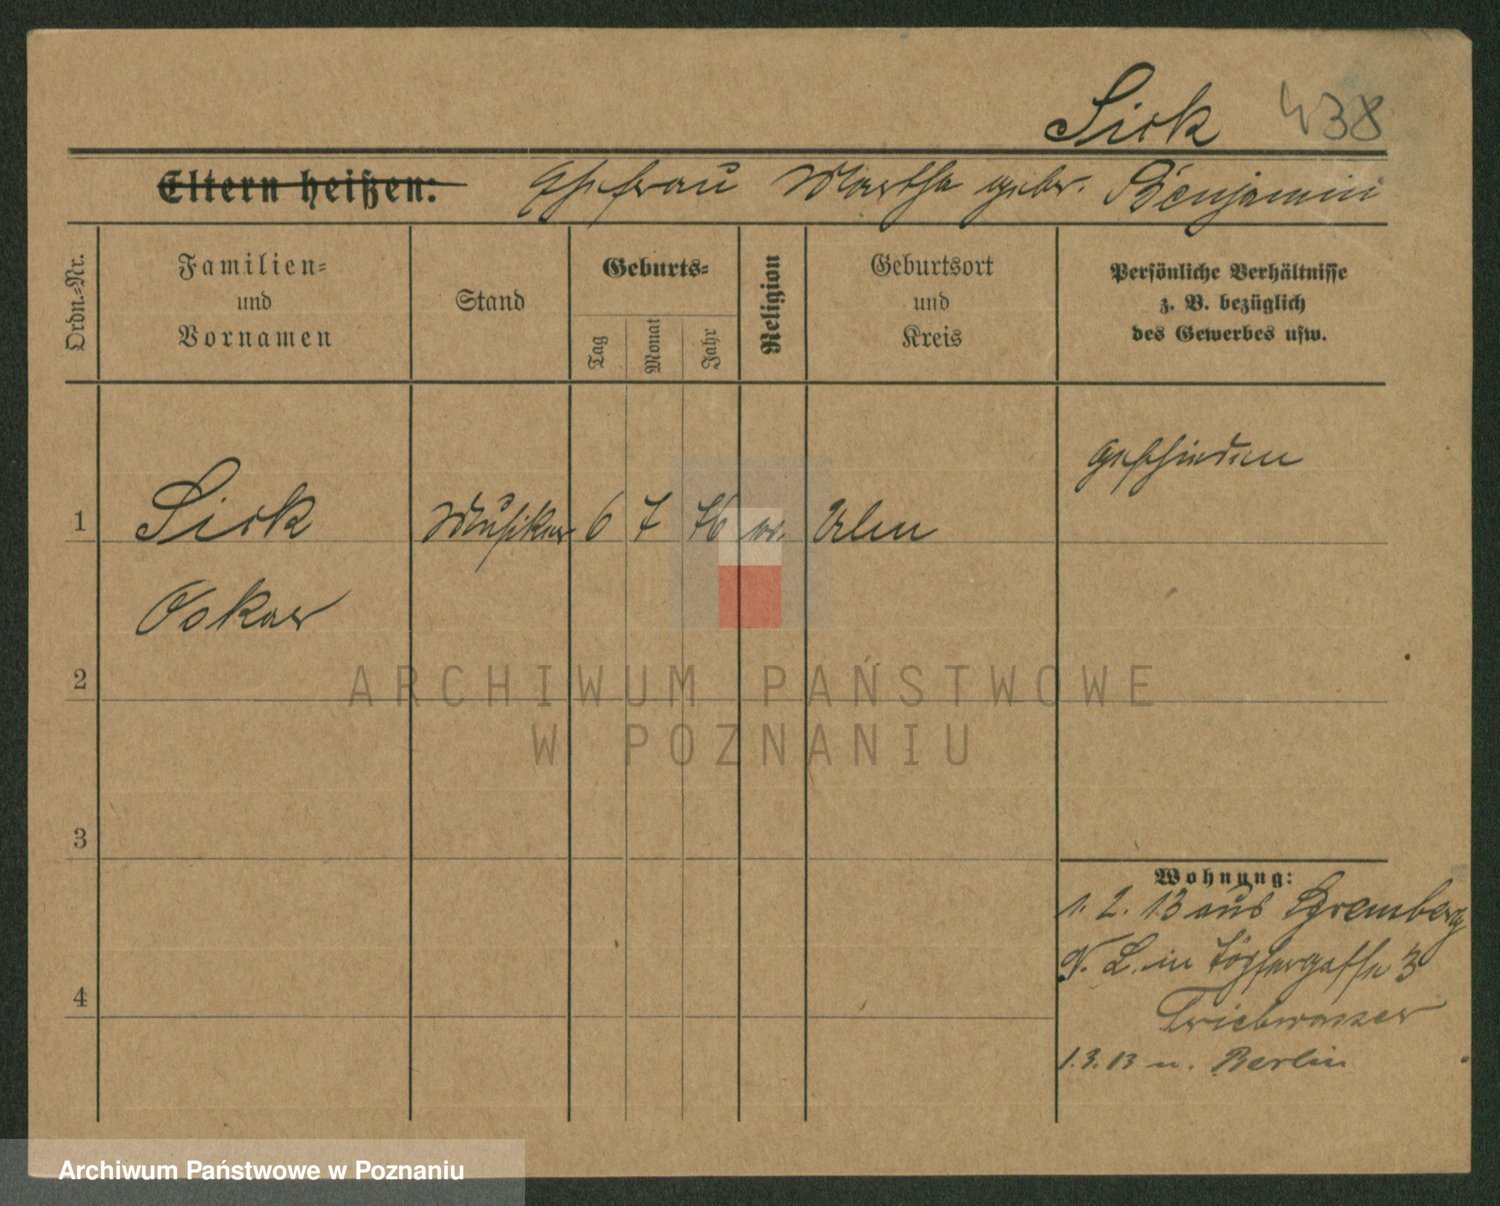 Sick 438
Eltern heißen: Ehefrau Martha gebr. Benjamin
Ordn.-Nr.
Familien-
und
Vornamen
Stand
Geburts-
Tag
Monat
Jahr
Religion
Geburtsort
und
Kreis
Persönliche Verhältnisse
z. B. bezüglich
des Gewerbes usw.
geschieden
1 Sick Musiker 6 7 76 ev. Ulm
Oskar
2
3
4
Wohnung:
1. 2. 13 aus Spremberg
N. L. in Töpfergasse 3
Triebwasser
1.3.13 n. Berlin
ARCHIWUM PAŃSTWOWE
W POZNANIU
Archiwum Państwowe w Poznaniu